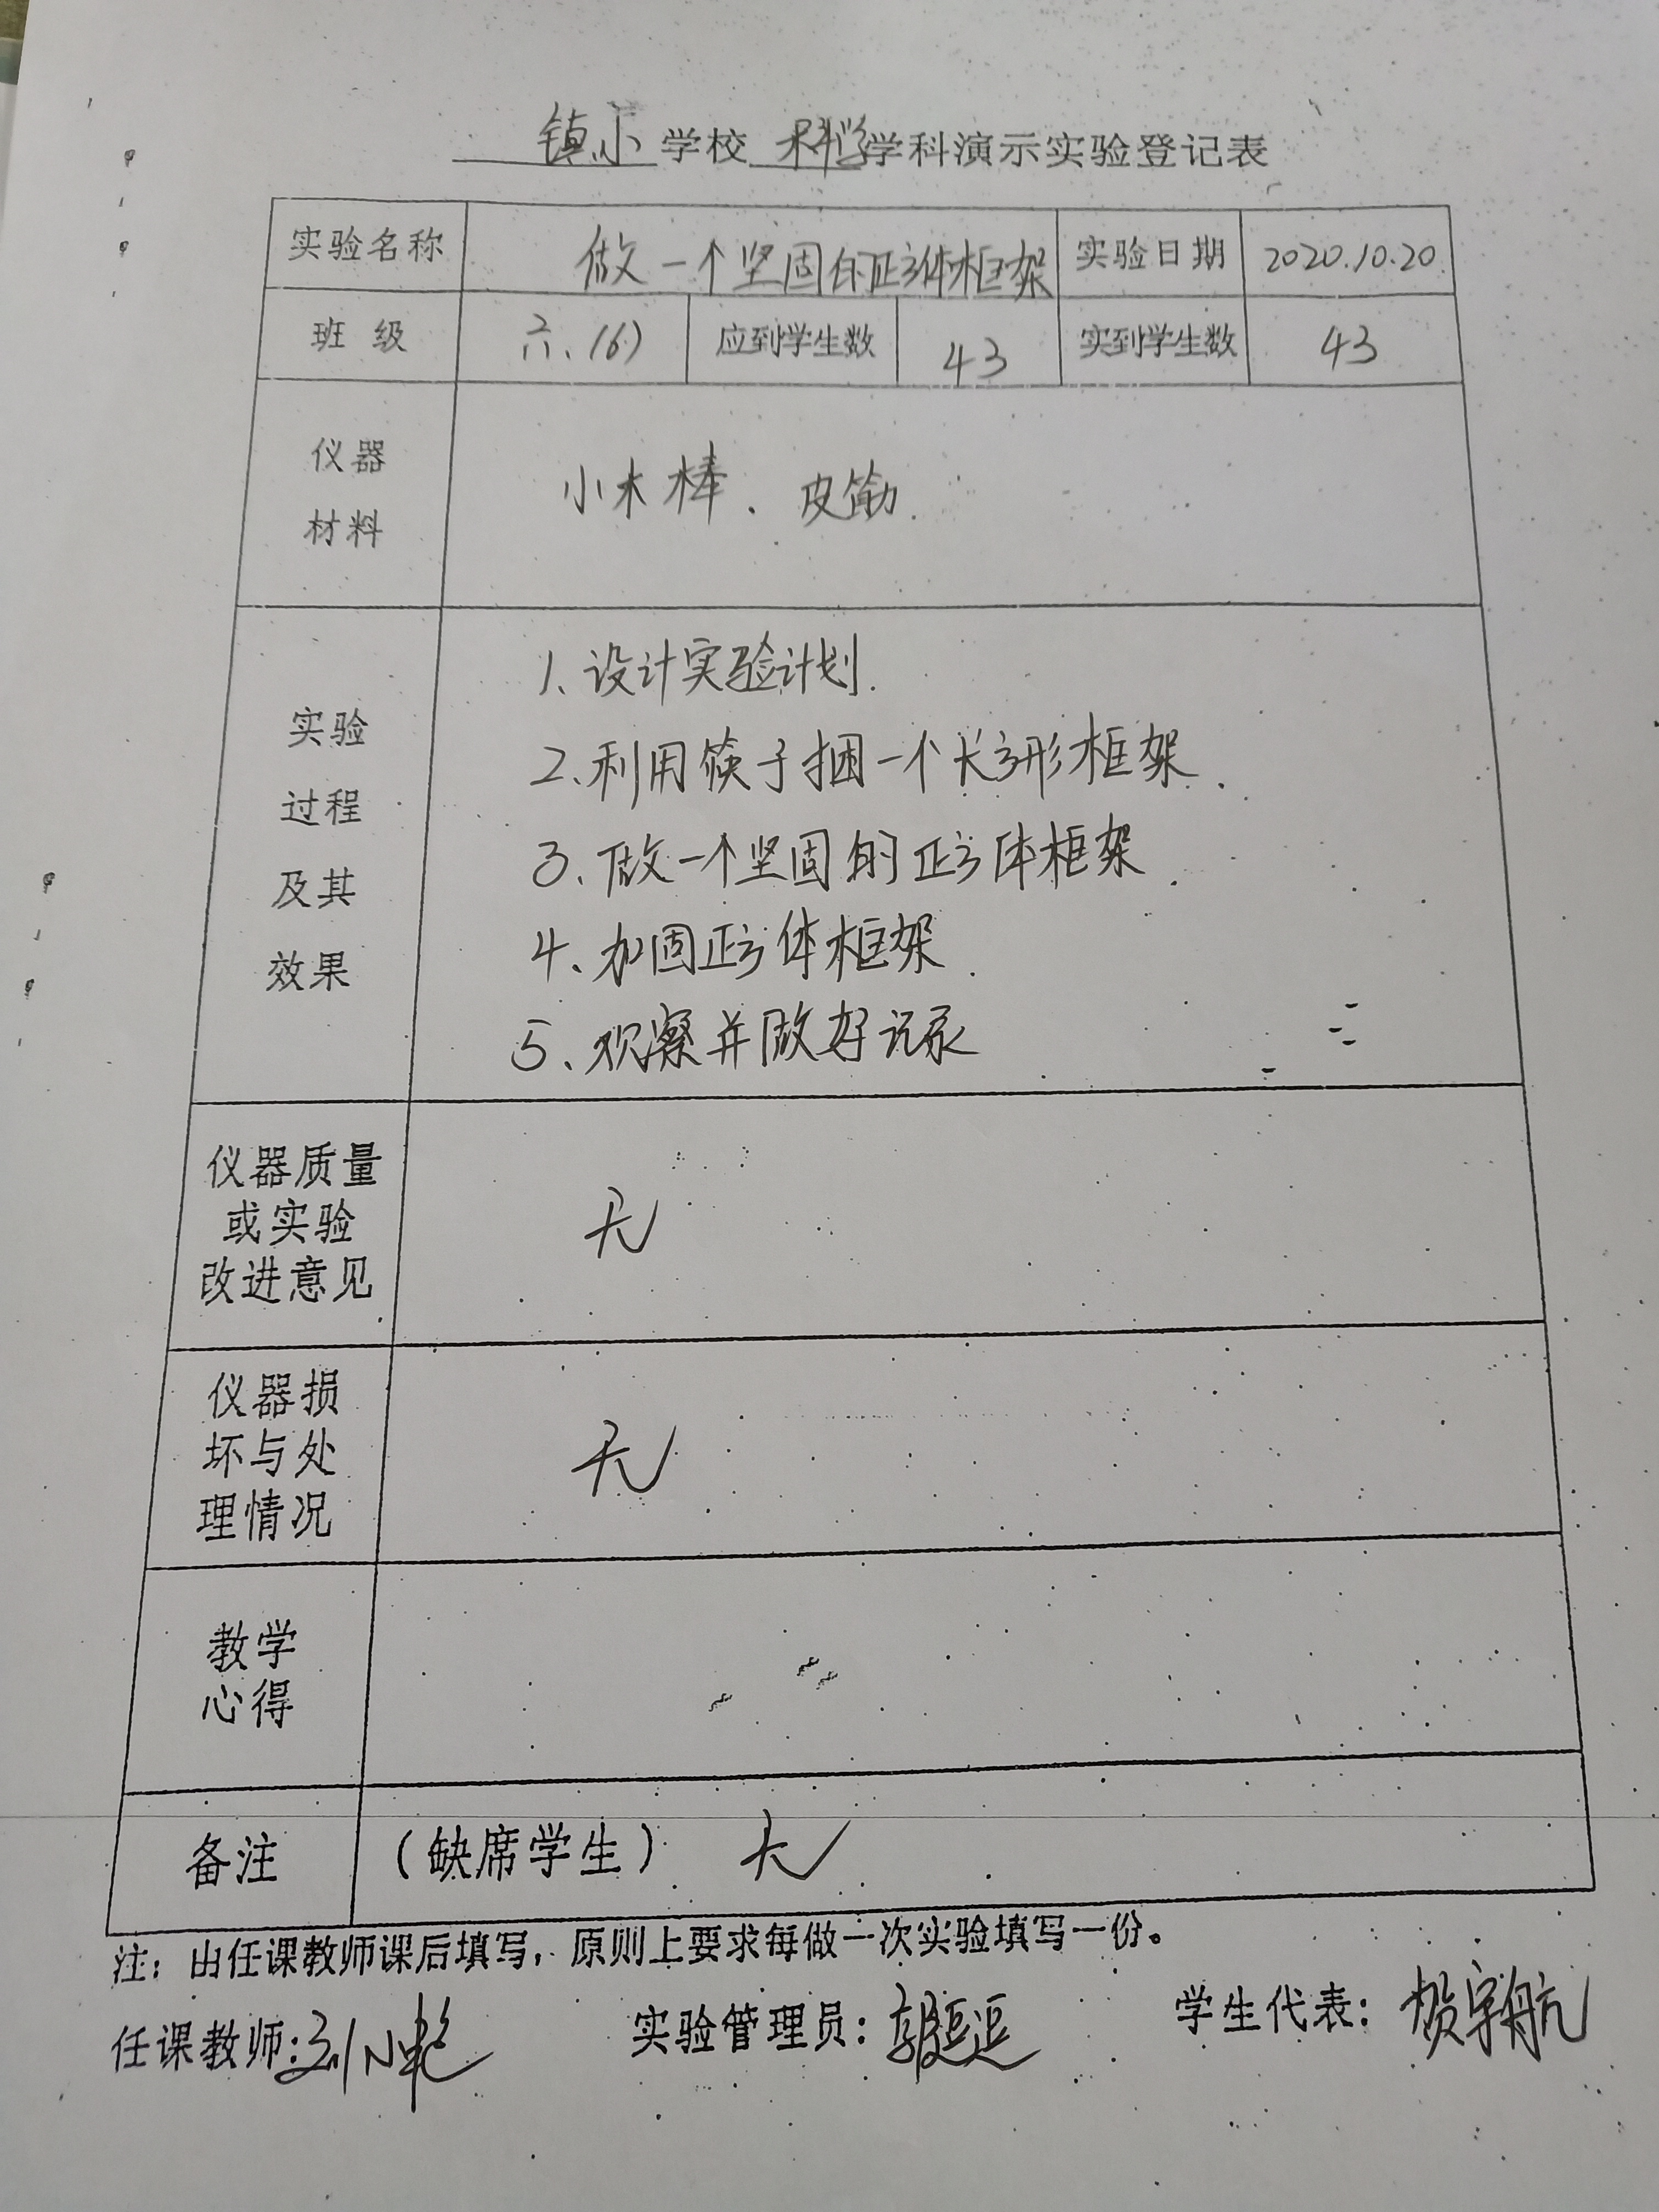 镇小学校 科学学科演示实验登记表
实验名称 做一个坚固的正方体框架 实验日期 2020.10.20
班 级 六、(6) 应到学生数 43 实到学生数 43
仪器
材料
小木棒、皮筋.
实验
过程
及其
效果
1、设计实验计划.
2、利用筷子捆一个长方形框架.
3、做一个坚固的正方体框架.
4、加固正方体框架.
5、观察并做好记录
仪器质量
或实验
改进意见
无
仪器损
坏与处
理情况
无
教学
心得
备注 (缺席学生) 无
注：由任课教师课后填写，原则上要求每做一次实验填写一份。
任课教师:刘小艳 实验管理员: 学生代表: 贺宇航